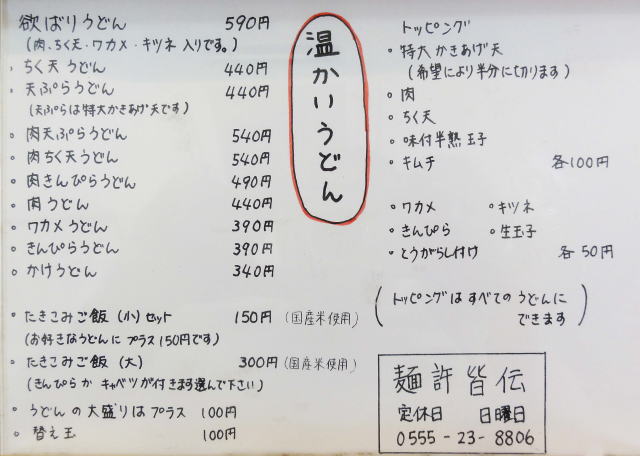 欲ばりうどん 590円
(肉、ちく天・ワカメ・キツネ 入りです。)
・ちく天うどん 440円
・天ぷらうどん 440円
(天ぷらは特大かきあげ天です)
・肉天ぷらうどん 540円
・肉ちく天うどん 540円
・肉きんぴらうどん 490円
・肉うどん 440円
・ワカメうどん 390円
・きんぴらうどん 390円
・かけうどん 340円
・たきこみご飯 (小) セット 150円 (国産米使用)
(お好きなうどんに プラス 150円です)
・たきこみご飯 (大) 300円 (国産米使用)
(きんぴらか キャベツが付きます選んで下さい)
・うどんの大盛りはプラス 100円
・替え玉 100円
温かいうどん
トッピング
・特大かきあげ天
(希望により半分に切ります)
・肉
・ちく天
・味付半熟玉子
・キムチ 各100円
・ワカメ ・キツネ
・きんぴら ・生玉子
・とうがらし付け 各50円
(トッピングはすべてのうどんに
できます)
麺許皆伝
定休日 日曜日
0555-23-8806